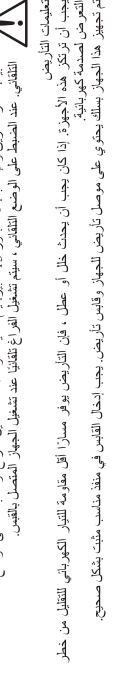 التلقائي. عند الضبط على الوضع التلقائي، سيتم تشغيل الفراغ تلقائيًا عند تشغيل الجهاز المتصل بالقبس.
تعليمات التأريض
يجب أن ترتكز هذه الأجهزة. إذا كان يجب أن يحدث خلل أو عطل، فإن التأريض يوفر مسارًا أقل مقاومة للتيار الكهربائي للتقليل من خطر
التعرض لصدمة كهربائية.
تم تجهيز هذا الجهاز بسلك يحتوي على موصل تأريض للجهاز وقابس تأريض. يجب إدخال القابس في منفذ مناسب مثبت بشكل صحيح